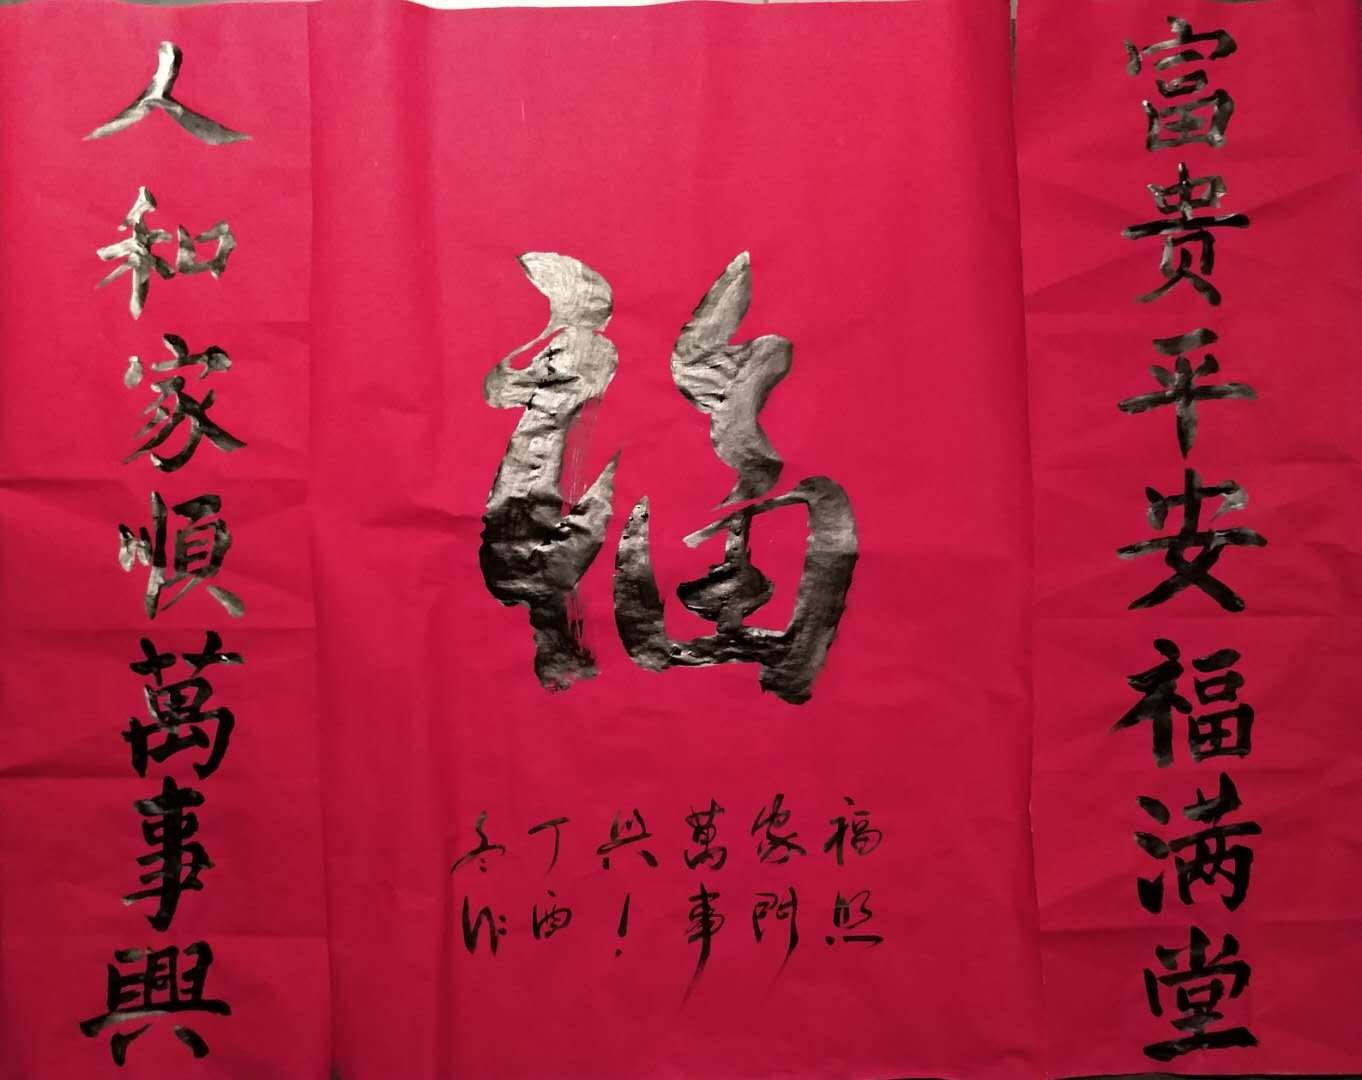 富贵平安福满堂
福
福照
家門
萬事
興！
丁酉
冬作
人和家順萬事興